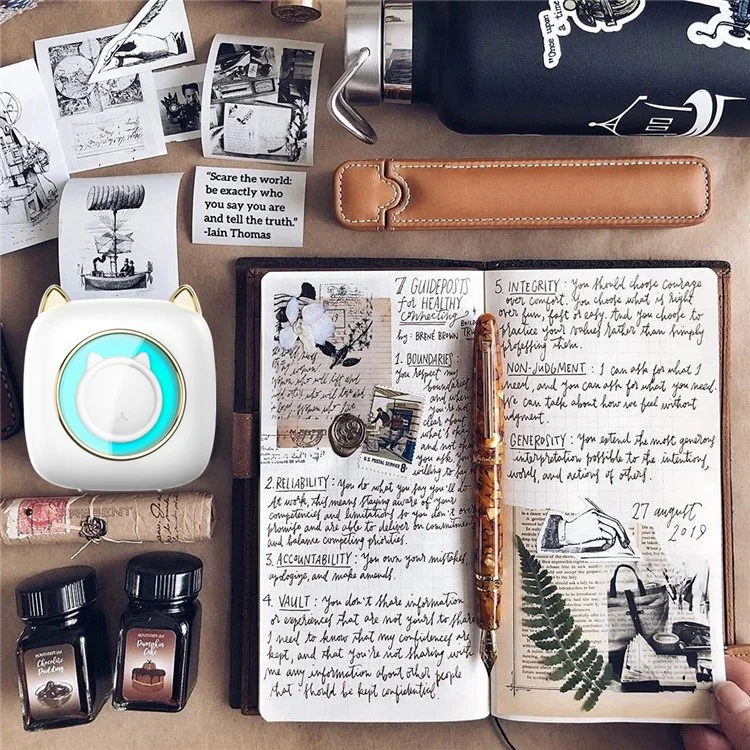 "Once upon
a time"
"Scare the world:
be exactly who
you say you are
and tell the truth."
-Iain Thomas
7 GUIDEPOSTS
for HEALTHY
Connecting
by: BRENÉ BROWN
1. BOUNDARIES:
You respect my
boundaries
and when
you're not
clear about
what's
and not
you ask.
willing to
U.S. POSTAL SERVICE 8c
2. RELIABILITY: You do what you say you'll do.
@ work, this means staying aware of your
competencies and limitations so you don't over
promise and are able to deliver on commitments
and balance competing priorities.
3. ACCOUNTABILITY: You own your mistakes,
apologize, and make amends.
4. VAULT: You don't share information
or experiences that are not yours to share
I need to know that my confidences are
kept, and that you're not sharing with
me any information about other people
that should be kept confidential.
5. INTEGRITY: You should choose courage
over comfort. You choose what is right
over fun, fast or easy. And you choose to
practice your values rather than simply
professing them.
NON-JUDGMENT: I can ask for what I
need, and you can ask for what you need.
We can talk about how we feel without
judgment.
GENEROSITY: You extend the most generous
interpretation possible to the intentions,
words, and actions of others.
27 august
2019
Chocolate
Pudding
Pumpkin
Cake